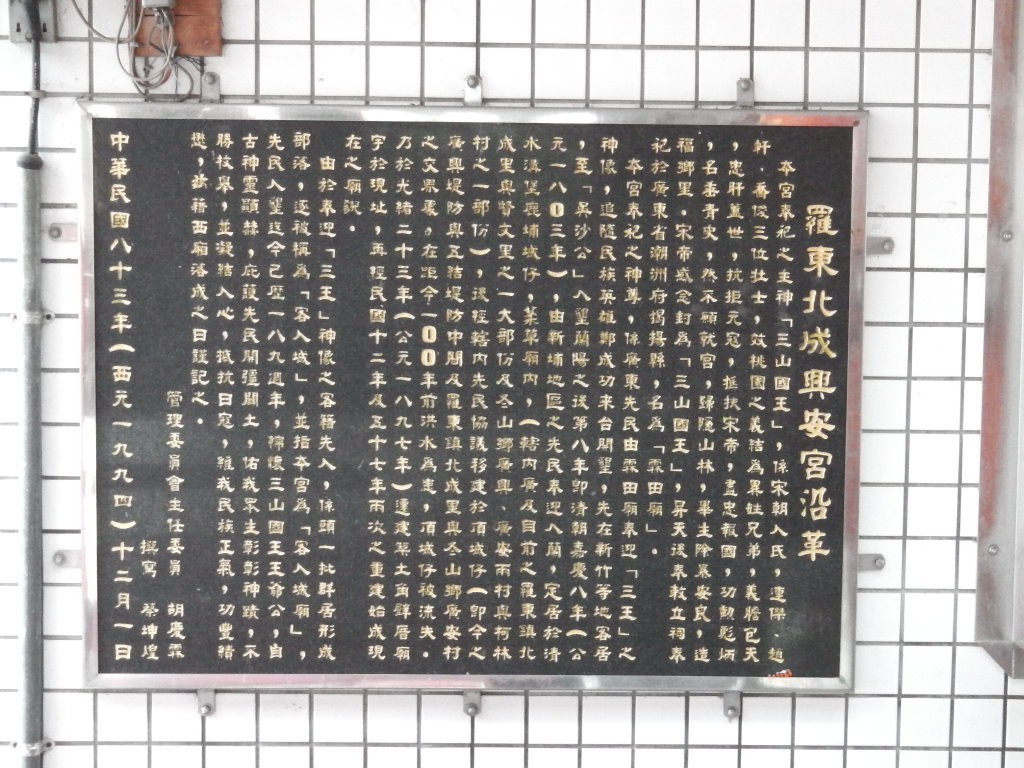 羅東北成興安宮沿革
本宮奉祀之主神「三山國王」,係宋朝人氏,連傑、趙
軒、喬俊三位壯士,效桃園之義結為異姓兄弟,義膽包天
,忠肝蓋世,抗拒元寇,挺扶宋帝,盡忠報國,功勲彪炳
,名垂青史,然不願就官,歸隱山林,畢生除暴安良,造
福鄉里。宋帝感念封為「三山國王」,昇天後奉敕立祠奉
祀於廣東省潮洲府揭揚縣,名為「霖田廟」。
本宮奉祀之神尊,係廣東先民由霖田廟奉迎「三王」之
神像,追隨民族英雄鄭成功來台開墾,先在新竹等地客居
,至「吳沙公」入墾蘭陽之後第八年卽清朝嘉慶八年(公
元一八0三年),由新埔地區之先民奉迎入蘭,定居於清
水溝堡鹿埔城仔,某草廟內,(轄內廣及目前之羅東鎮北
成里與贊文里之一大部份及冬山鄉廣興、廣安兩村與柯林
村之一部份),後經轄內先民協議移建於頂城仔(卽今之
廣興堤防與五結堤防中間及羅東鎮北成里與冬山鄉廣安村
之交界處,在距今一00年前洪水為患,頂城仔被流失。
乃於光緒二十三年(公元一八九七年)遷建翠土角厝廟
宇於現址,再經民國十二年及五十七年兩次之重建始成現
在之廟貌。
由於奉迎「三王」神像之客籍先人,係頭一批群居形成
部落,逐被稱為「客人城」,並指本宮為「客人城廟」,
先民入墾迄今已歷一八九週年,緬懷三山國王王爺公,自
古神靈顯赫,庇護先民開疆闢土,佑我眾生彰彰神蹟,不
勝枚舉,並凝結人心,抵抗日寇,維我民族正氣,功豐績
懋,茲藉西廂落成之日謹記之。
管理委員會主任委員 胡慶霖
撰寫 蔡坤煌
中華民國八十三年(西元一九九四)十二月一日